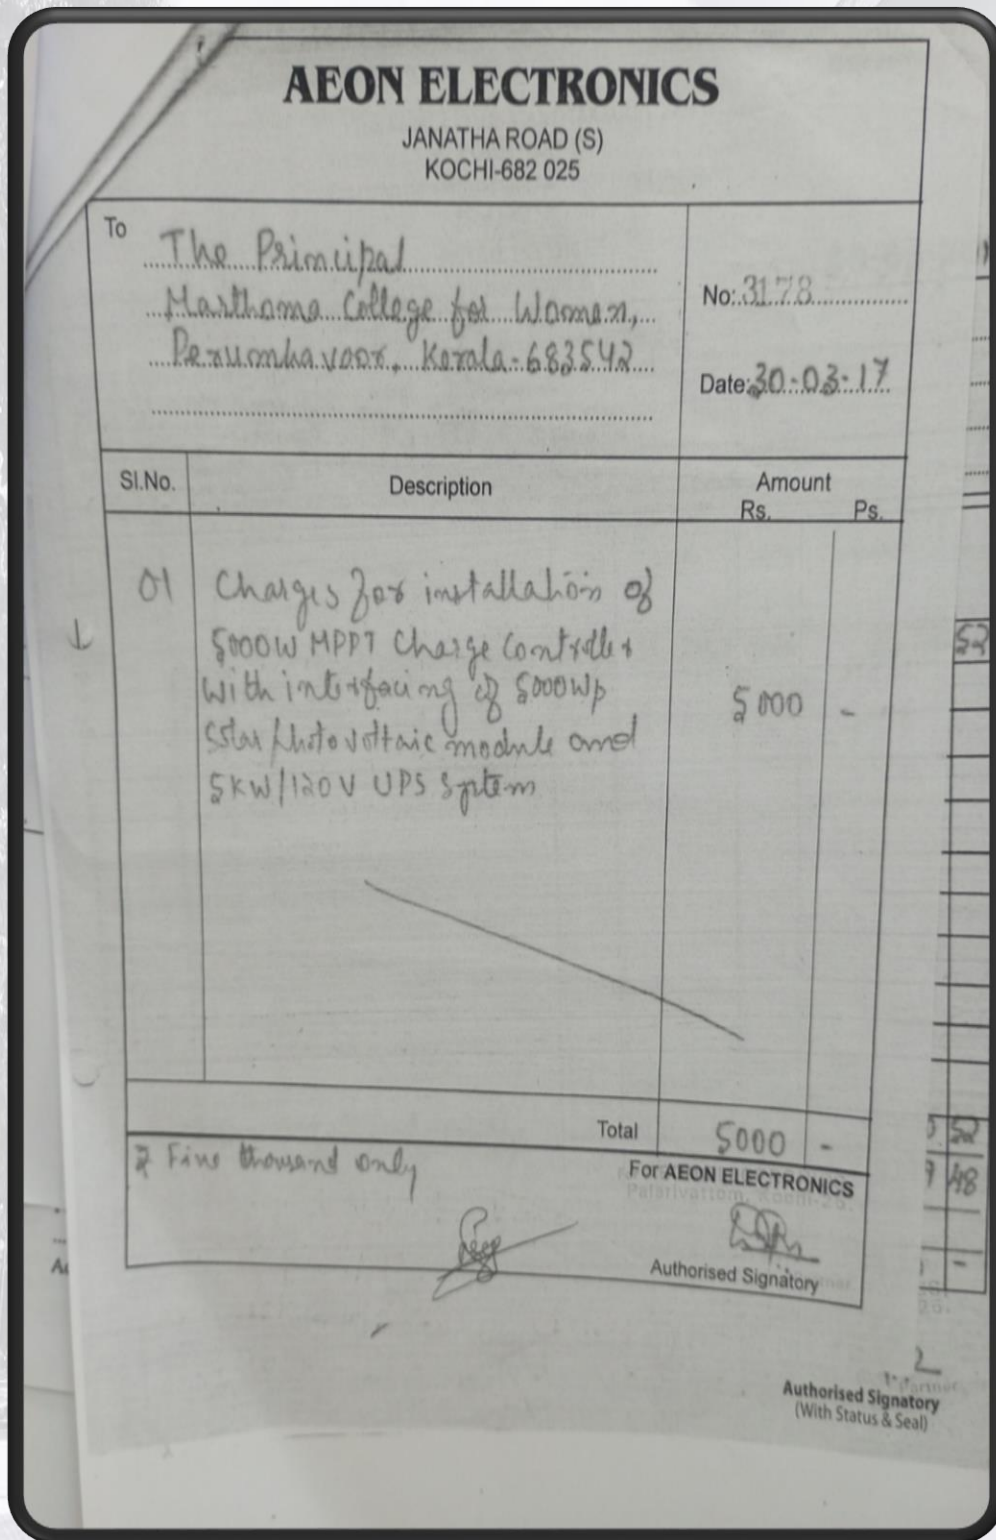 AEON ELECTRONICS
JANATHA ROAD (S)
KOCHI-682 025
To
The Principal
Marthoma College for Women,
Perumbavoor, Kerala-683542
No: 3178
Date: 30-03-17
Sl.No.
Description
Amount
Rs.
Ps.
01
Charges for installation of
5000W MPPT Charge Controller
with interfacing of 5000Wp
Solar photovoltaic module and
5KW/120V UPS System
5000 -
Total 5000 -
₹ Five thousand only
For AEON ELECTRONICS
Palarivattom, Kochi-25.
Authorised Signatory
52
52
9 48
-
Authorised Signatory
(With Status & Seal)